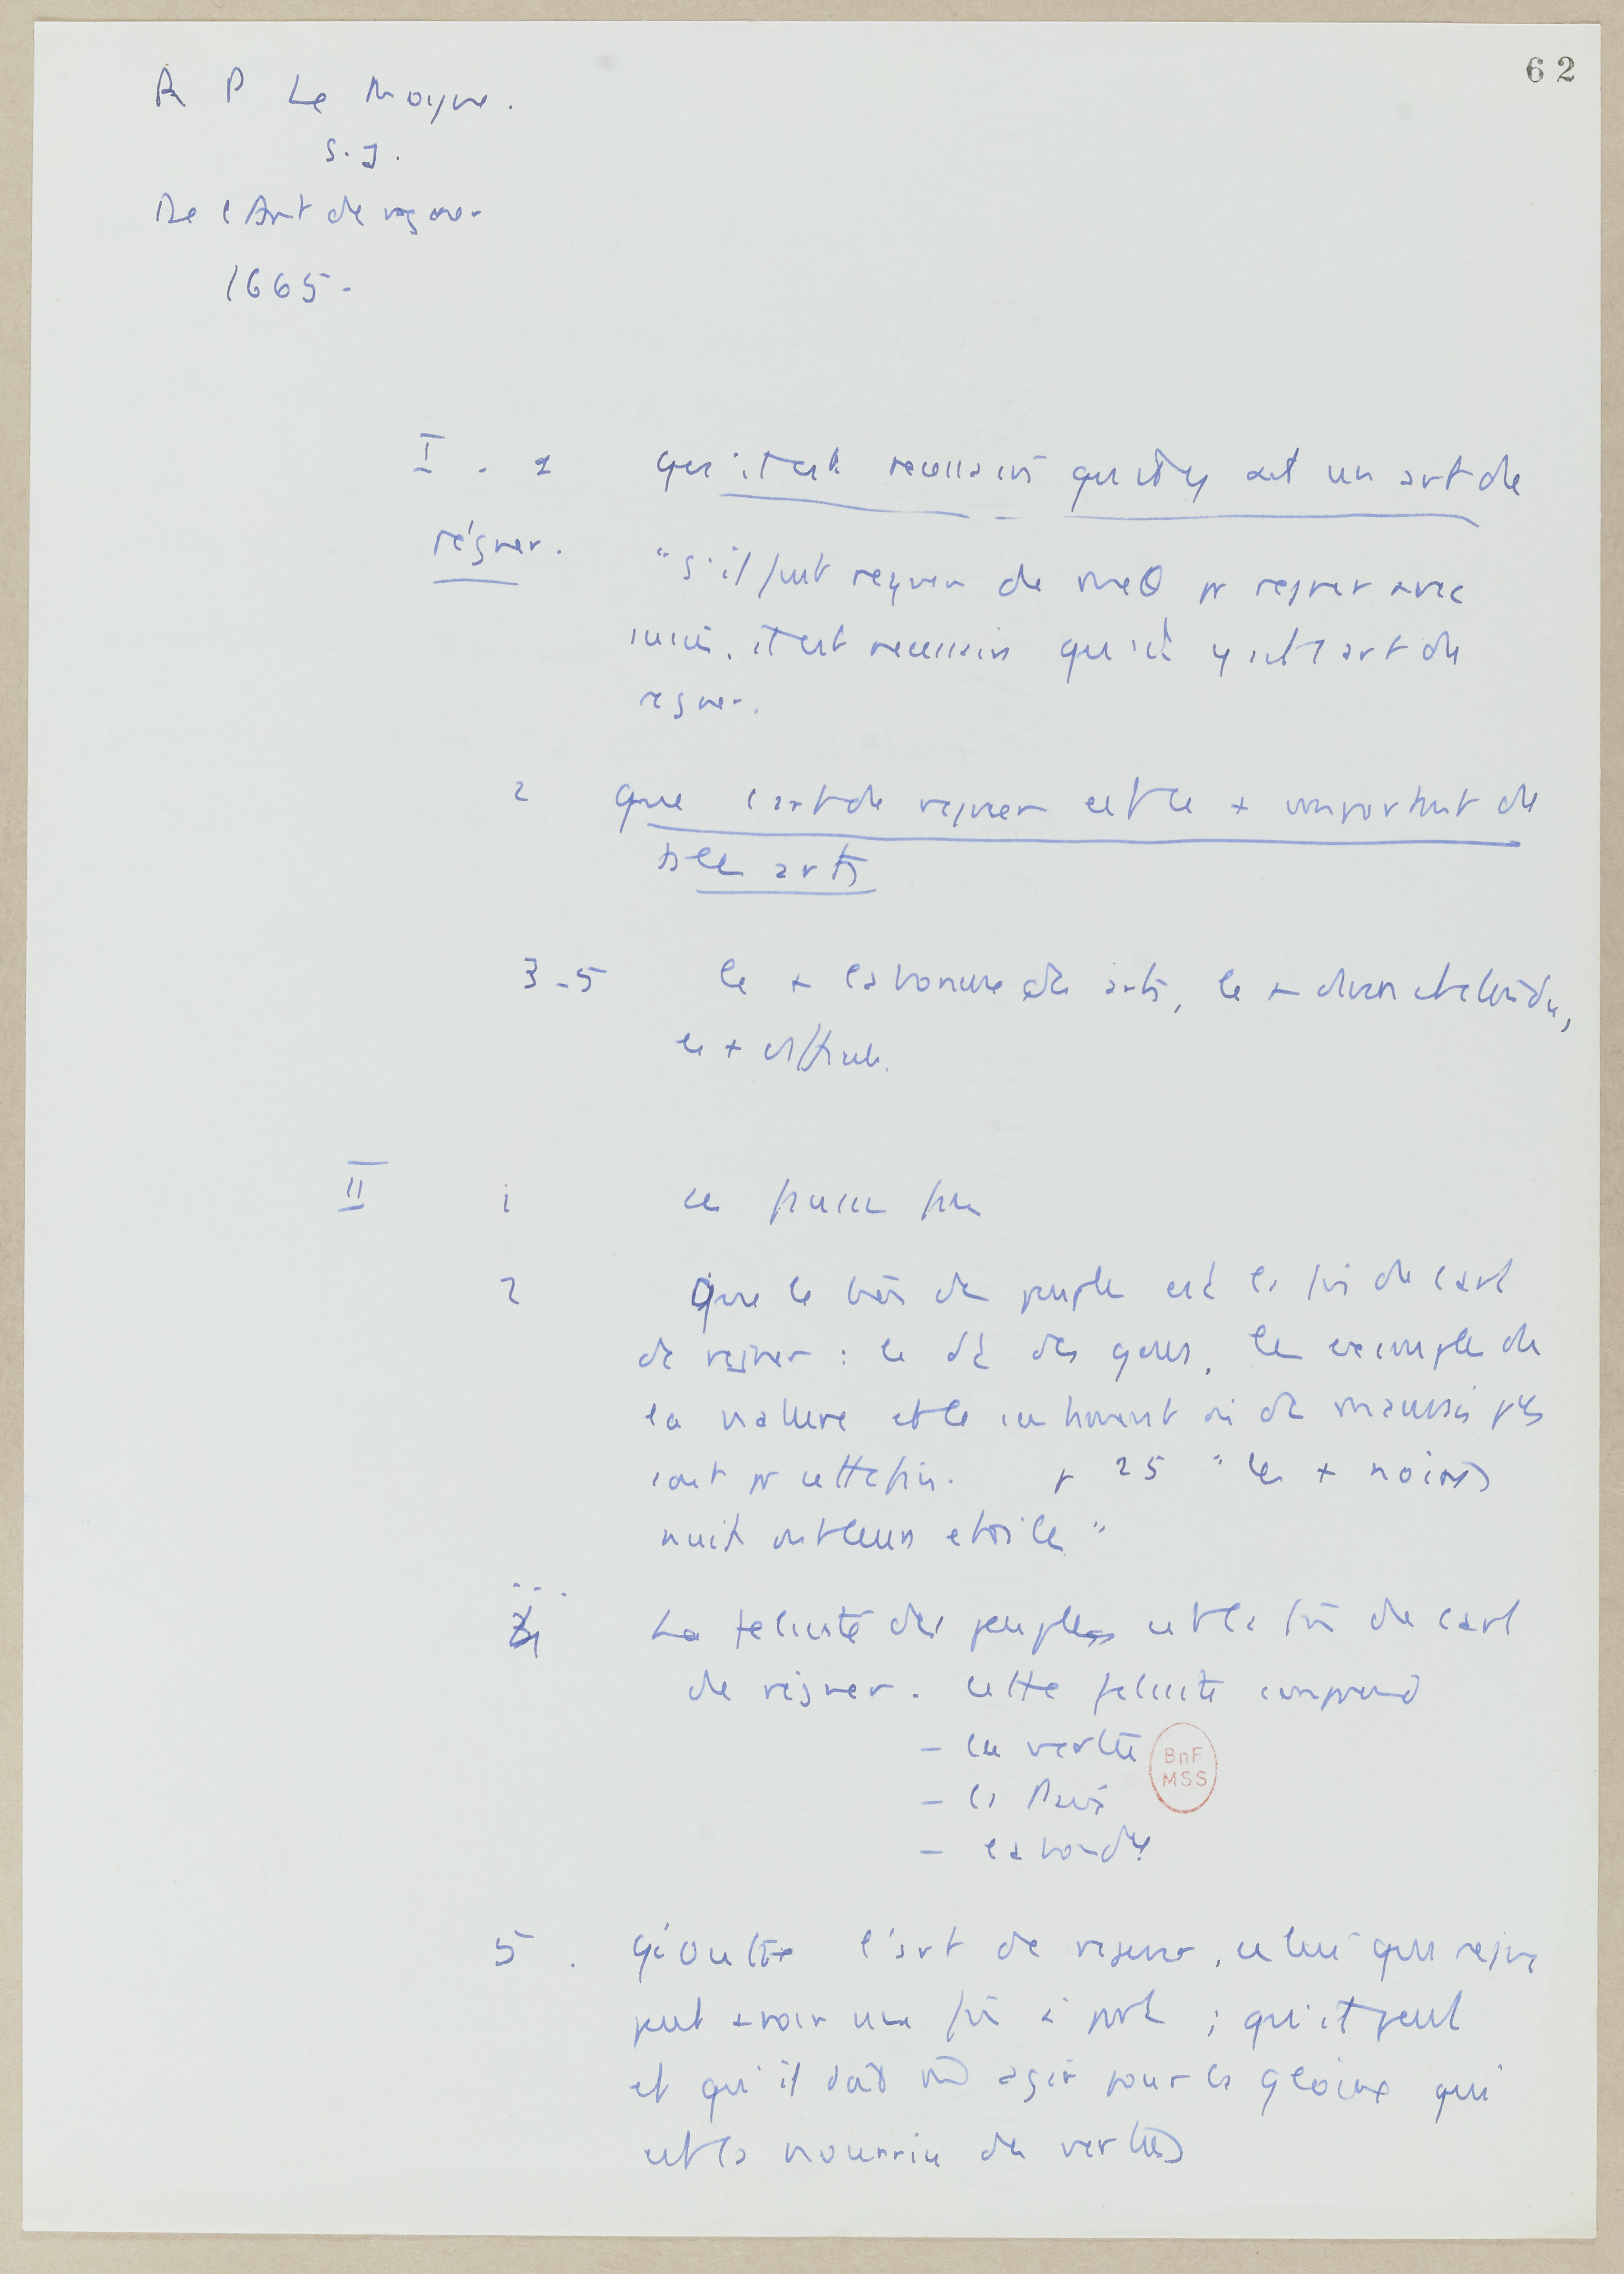 62
R P Le Moyne.
S.J.
De l'Art de regner
1665.
I. 1 qu'il est necessaire qu'il y ait un art de
régner.
"S'il faut regner de meth pr regner avec
succès, il est necessaire qu'il y ait 1 art de
regner.
2 que l'art de regner est le + important de
ts les arts
3-5 le + des arts, le + et etendu,
le + difficile.
II 1 les fausses fins
2 Que le bien du peuple est la fin de l'art
de regner : le dt des gens, les exemples de
la nature et le sentiment mê des mauvais pces
sont pr cette fin. p 25 "les + noires
nuits ont leurs etoiles"
La felicité des peuples est la fin de l'art
de régner. Cette felicité comprend
- la vertu
- la Paix
- l'abondce
BnF
MSS
5. Qu'outre l'art de regner, celui qui regne
peut avoir une fin à part ; qu'il peut
et qu'il doit mê agir pour la gloire qui
est la nourrice des vertus